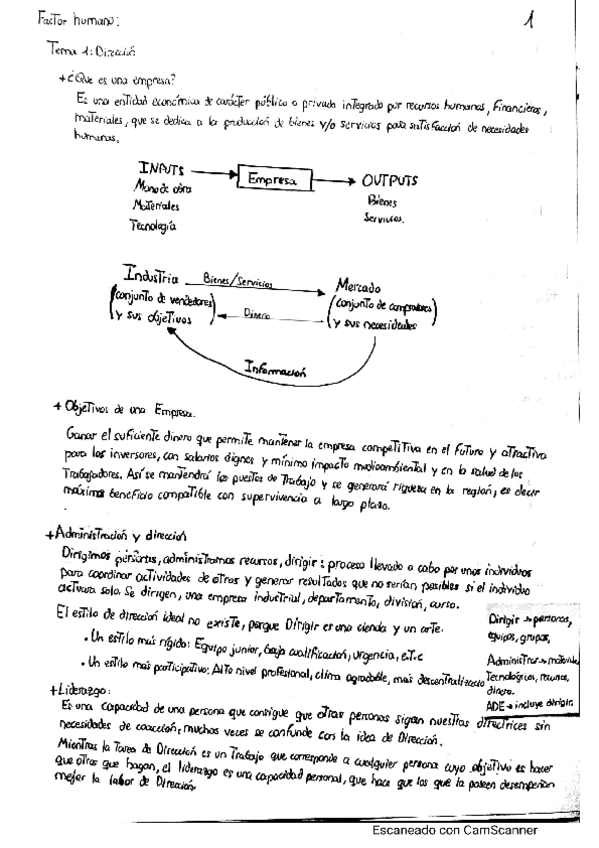 Factor humano:
1
Tema 1: Dirección
+ ¿Que es una empresa?
Es una entidad económica de carácter público o privado integrada por recursos humanos, financieros,
materiales, que se dedica a la producción de bienes y/o servicios para satisfacción de necesidades
humanas.
INPUTS → Empresa → OUTPUTS
Mano de obra
Materiales
Tecnología
Bienes
Servicios.
Industria
(conjunto de vendedores
y sus objetivos)
Bienes/Servicios
Dinero
Mercado
(conjunto de compradores
y sus necesidades)
Información
+ Objetivos de una Empresa.
Ganar el suficiente dinero que permite mantener la empresa competitiva en el futuro y atractiva
para los inversores, con salarios dignos y mínimo impacto medioambiental y en la salud de los
Trabajadores. Así se mantendrá los puestos de Trabajo y se generará riqueza en la región, es decir
máximo beneficio compatible con supervivencia a largo plazo.
+ Administración y dirección
Dirigimos personas, administramos recursos, dirigir: proceso llevado a cabo por unos individuos
para coordinar actividades de otros y generar resultados que no serían posibles si el individuo
actuara solo. Se dirigen, una empresa industrial, departamento, división, curso.
El estilo de dirección ideal no existe, porque Dirigir es una ciencia y un arte.
• Un estilo más rígido: Equipo junior, baja cualificación, urgencia, e.t.c
• Un estilo más participativo: Alto nivel profesional, clima agradable, más descentralizado
Dirigir → personas,
equipos, grupos,
Administrar →
Tecnológicos, recursos,
dinero.
ADE → incluye dirigir.
+ Liderazgo:
Es una capacidad de una persona que consigue que otras personas sigan nuestras directrices sin
necesidades de coacción, muchas veces se confunde con la idea de Dirección.
Mientras la Tarea de Dirección es un Trabajo que corresponde a cualquier persona cuyo objetivo es hacer
que otros que hagan, el liderazgo es una capacidad personal, que hace que los que la poseen desempeñan
mejor la labor de Dirección.
Escaneado con CamScanner